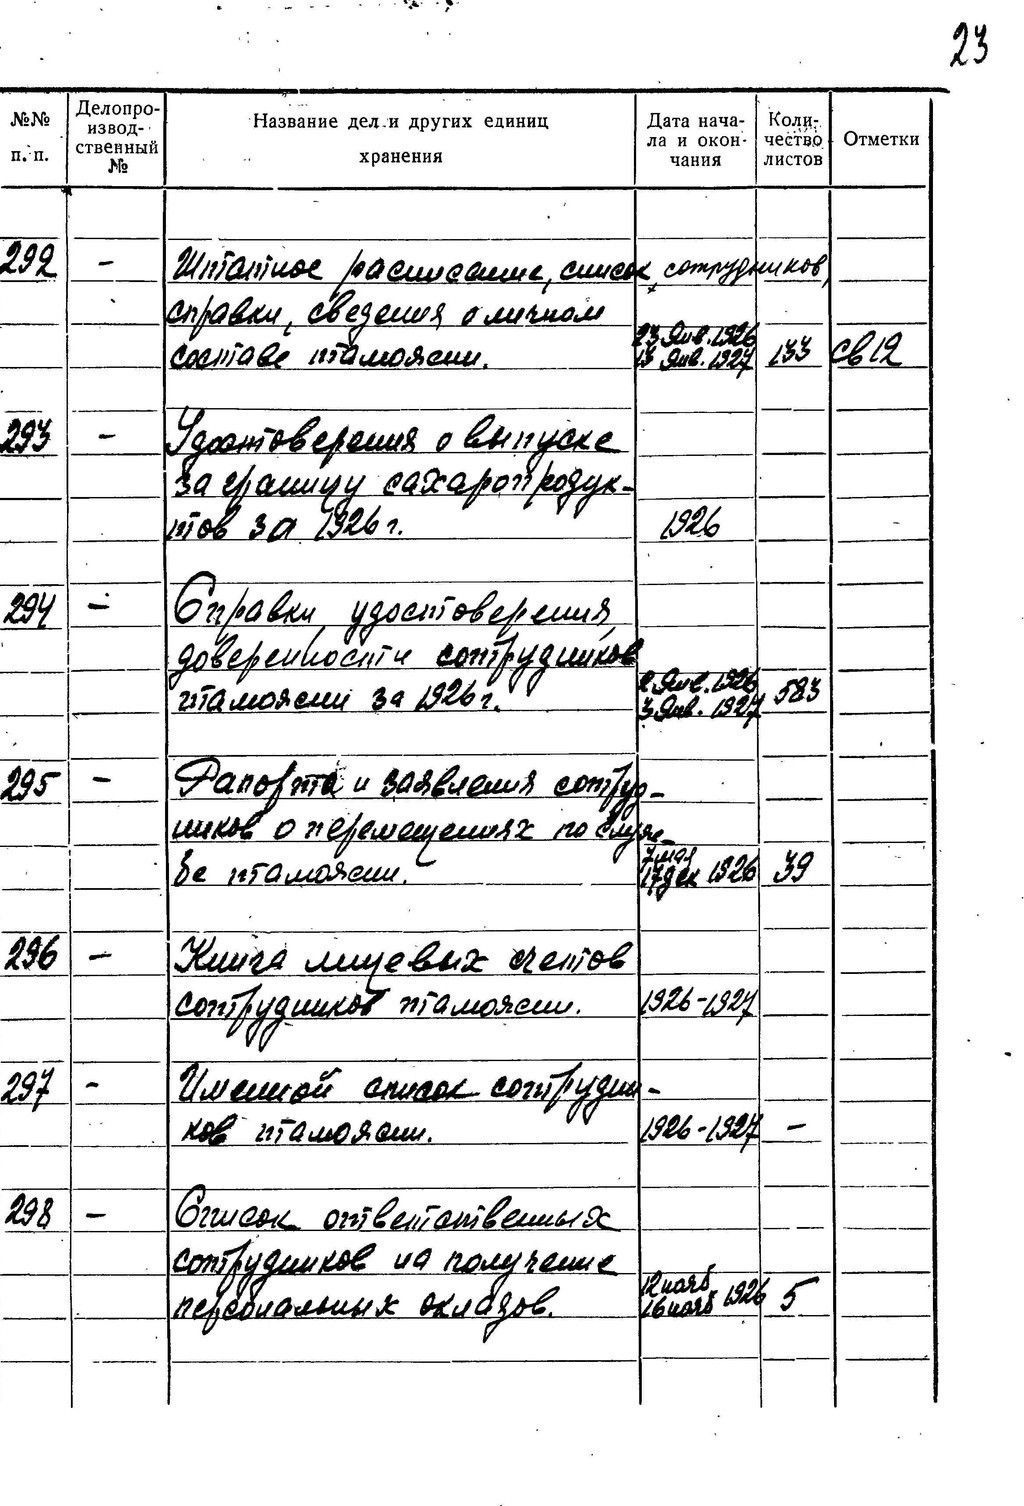 23
№№ п. п.
Делопро-
извод-
ственный
№
Название дел и других единиц
хранения
Дата нача-
ла и окон-
чания
Коли-
чество
листов
Отметки
292 – Штатное расписание, список сотрудников,
справки, сведения о личном
составе таможни. 23 Янв. 1926 13 Янв. 1927 133 св 12
293 – Удостоверения о выпуске
за границу сахаропродук-
тов за 1926 г. 1926
294 – Справки, удостоверения,
доверенности сотрудников
таможни за 1926 г. 2 Янв. 1926 3 Янв. 1927 583
295 – Рапорта и заявления сотруд-
ников о перемещениях по служ-
бе таможни. 7 мая 17 дек 1926 39
296 – Книга лицевых счетов
сотрудников таможни. 1926-1927
297 – Именной список сотрудни-
ков таможни. 1926-1927 –
298 – Список ответственных
сотрудников на получение
персональных окладов. 12 нояб 16 нояб 1926 5